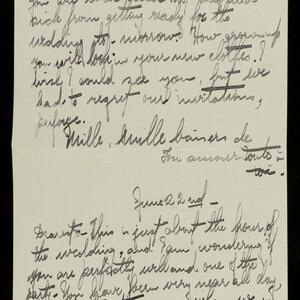 back from getting ready for the
wedding to-morrow. How grown up
you will look in your new clothes! I
wish I could see you, but we
had to regret our invitations,
perforce.
Mille, mille baisers de
Ton amour toute à
toi
June 22nd
Dearest – This is just about the hour of
the wedding, and I am wondering if
you are perfectly well and one of the
party. You have been very near all day,